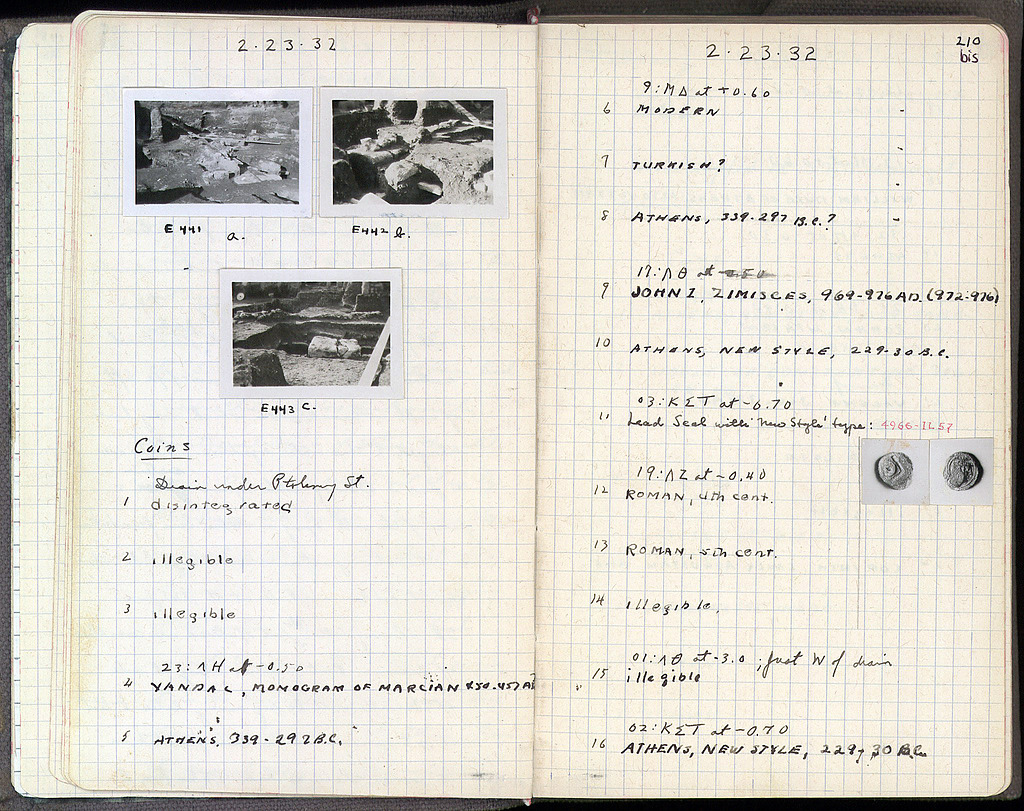 2·23·32
E 441 a.
E 442 b.
E 443 c.
Coins
Drain under Ptolemy St.
1 disintegrated
2 illegible
3 illegible
23:ΛΗ at -0.50
4 VANDAL, MONOGRAM OF MARCIAN 450-457 A
5 ATHENS, 339-297 B.C.
210
bis
2·23·32
9:ΜΔ at +0.60
6 MODERN
7 TURKISH?
8 ATHENS, 339-297 B.C.?
17:ΛΘ at
9 JOHN I, ZIMISCES, 969-976 AD. (972-976)
10 ATHENS, NEW STYLE, 229-30 B.C.
03:ΚΣΤ at -0.70
11 Lead Seal with 'New Style' type: 4966-IL57
19:ΛΖ at -0.40
12 ROMAN, 4th cent.
13 ROMAN, 5th cent.
14 illegible.
01:ΛΘ at -3.0; just W of drain
15 illegible
02:ΚΣΤ at -0.70
16 ATHENS, NEW STYLE, 229-30 B.C.